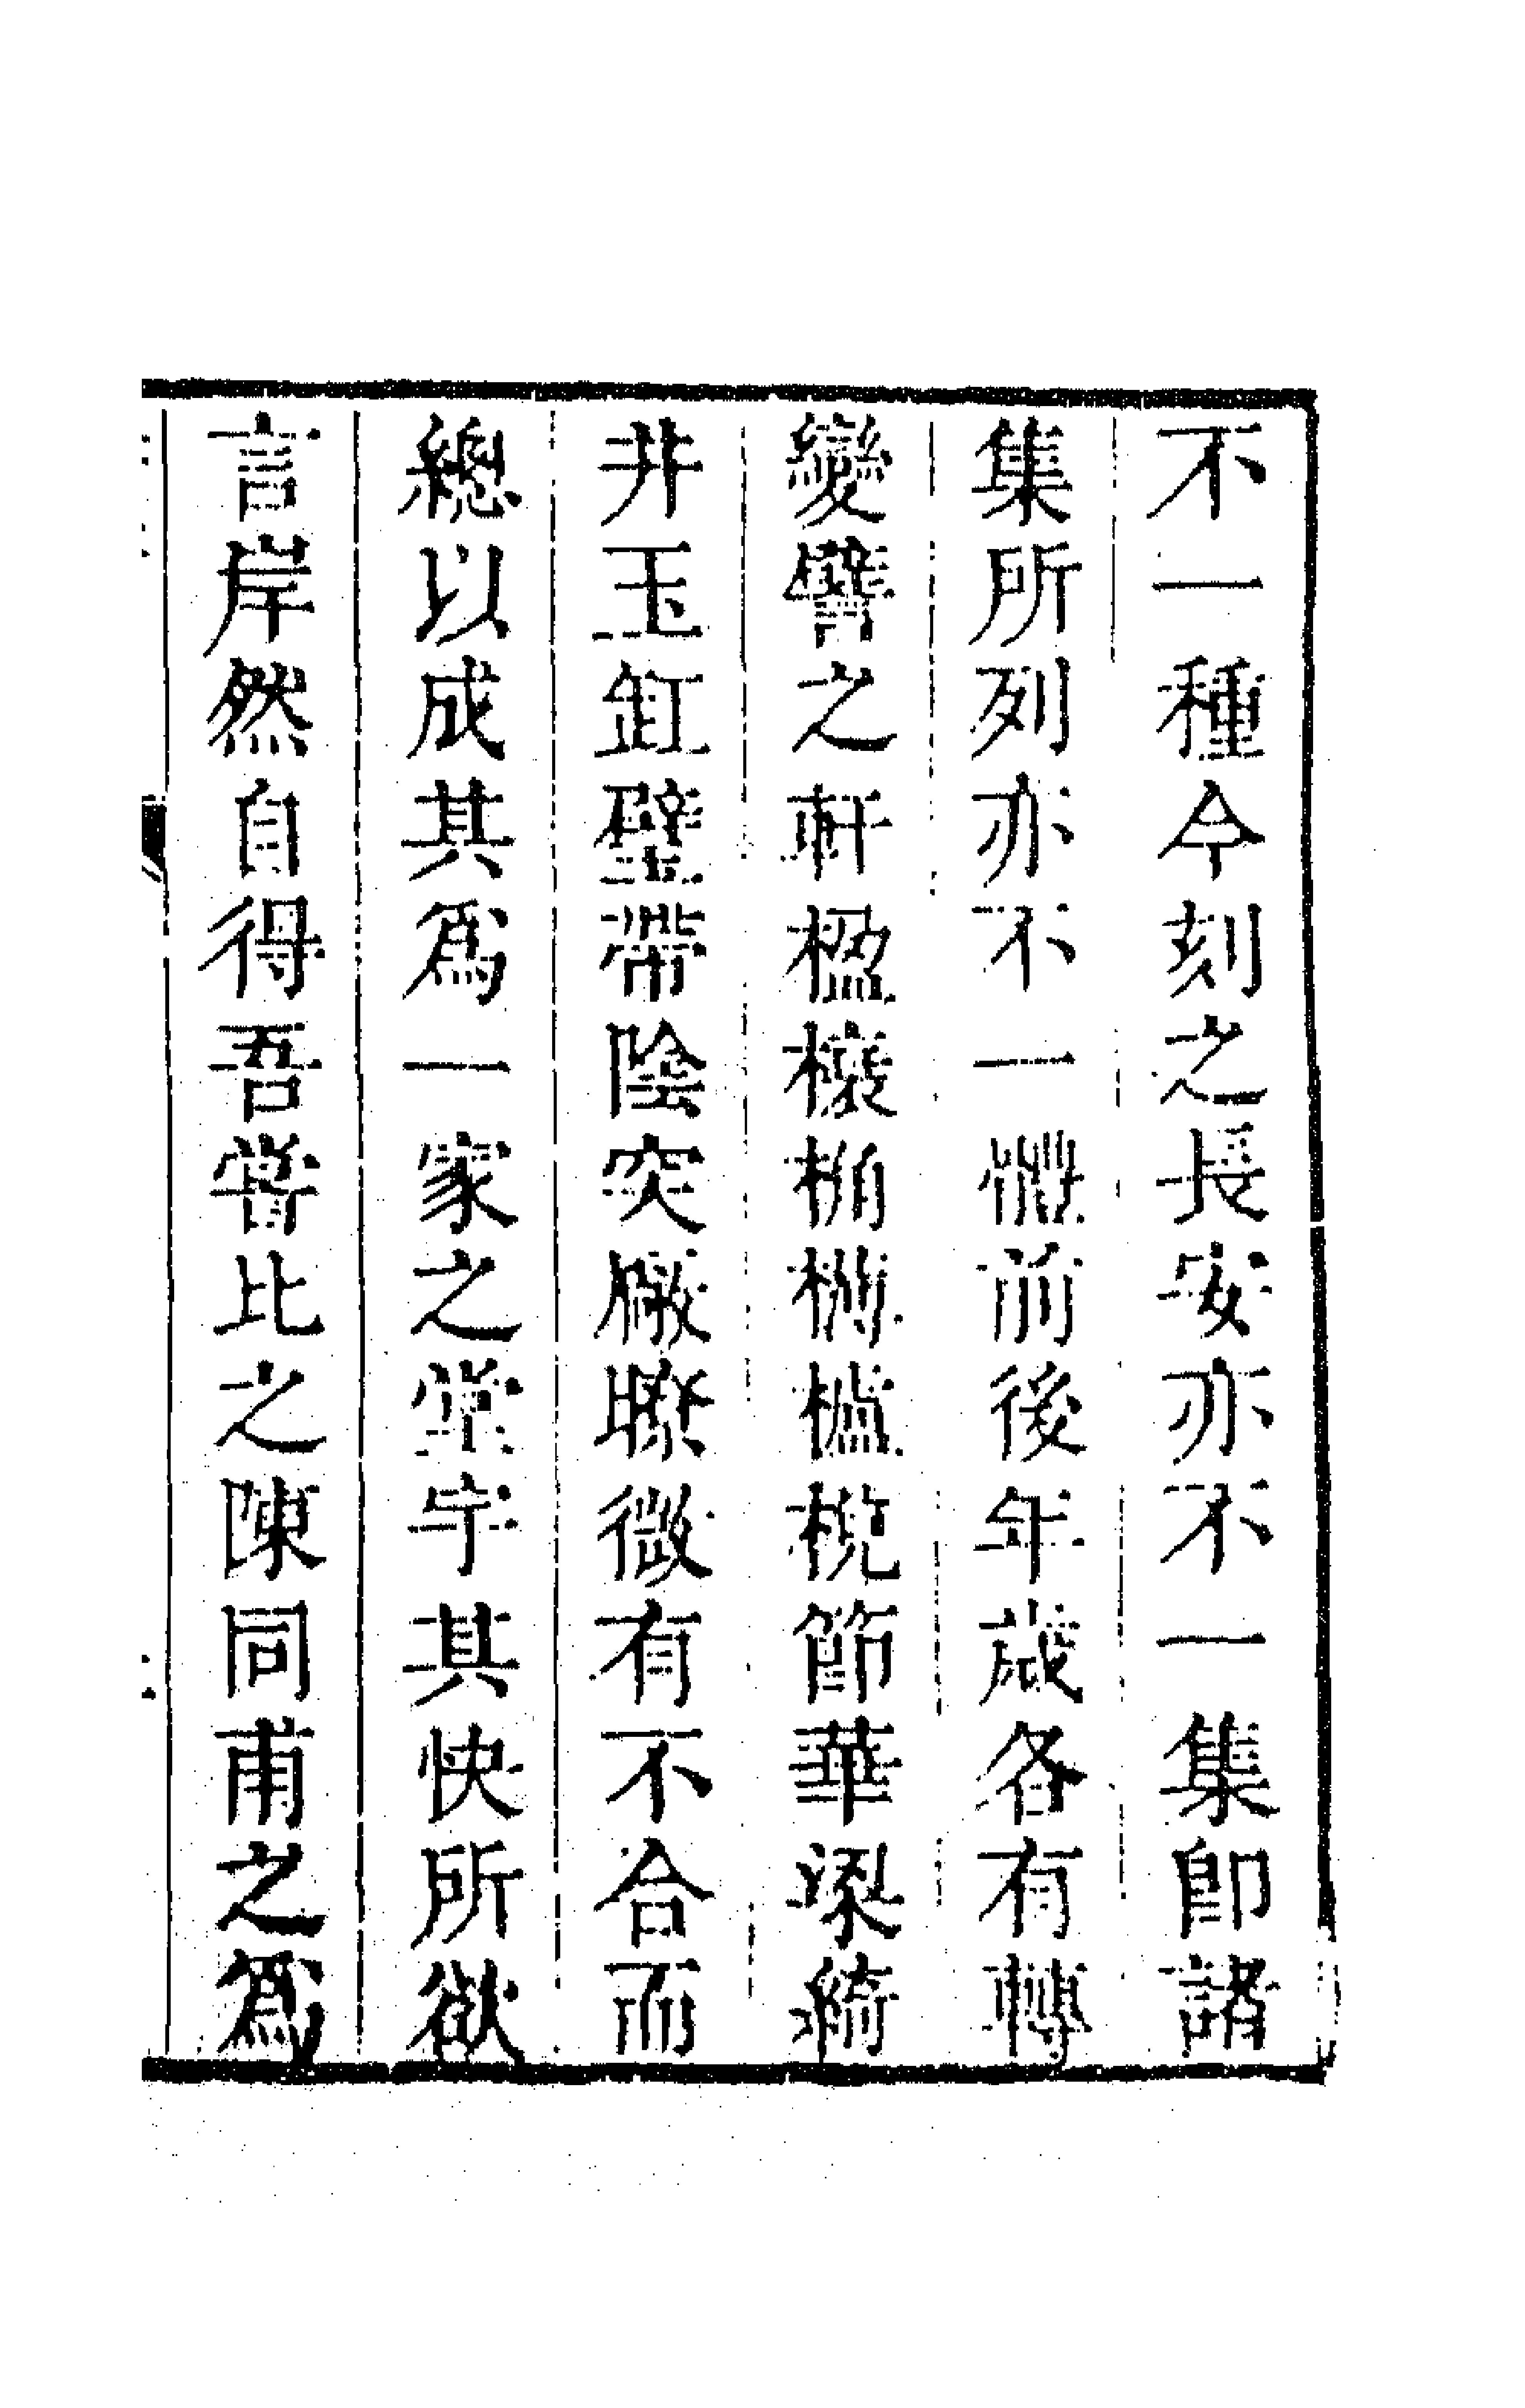 不一種今刻之長安亦不一集即諸
集所列亦不一前後年歲各有轉
變譬之軒楹榱桷櫨梲節華梁綺
井玉缸壁帶陰突廠瞭微有不合而
總以成其爲一家之堂宇其快所欲
言岸然自得吾嘗比之陳同甫之爲